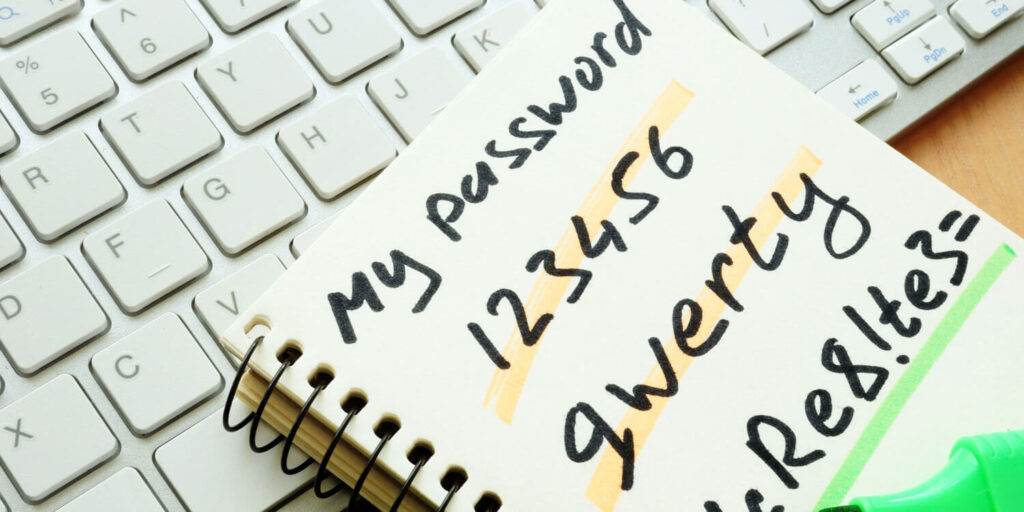 My password
123456
qwerty
Re8!te3=
^
6
U
K
PgUp
End
%
5
Y
J
PgDn
T
H
Home
R
G
F
D
V
C
X